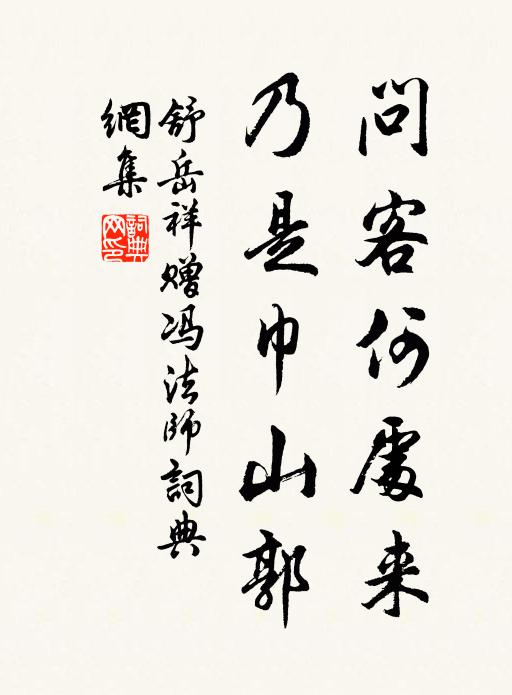 問客何處来
乃是巾山郭
舒岳祥赠冯法師詞典
網集
詞典
网印